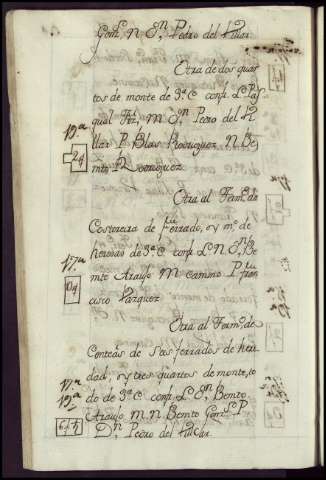 Gonz.s N D.n Pedro del Villar
Otra de dos quar
tos de monte de 3.ª C conf. L Pas
qual M D.n Pedro del Vi
llar P Blas Rodriguez N Be
nito Rodriguez
19.ª
2q
Otra al Term.o de
de ferrado, y m.o de
heredad de 3.ª C conf. L N D.n Be
nito Araujo M camino P Fran
cisco Vazquez
17.ª
Otra al Term.o de
de Seis ferrados de here
dad, y tres quartos de monte, to
do de 3.ª C conf. L D.n Benito
Araujo M N Benito Gonz.s P
D.n Pedro del Villar.
17.ª
19.ª